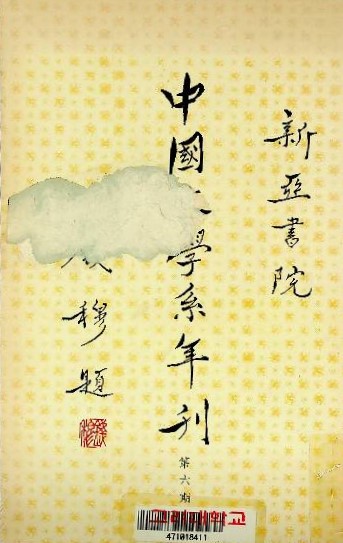 新亞書院
中國文學系年刊
穆題
第六期
471018411